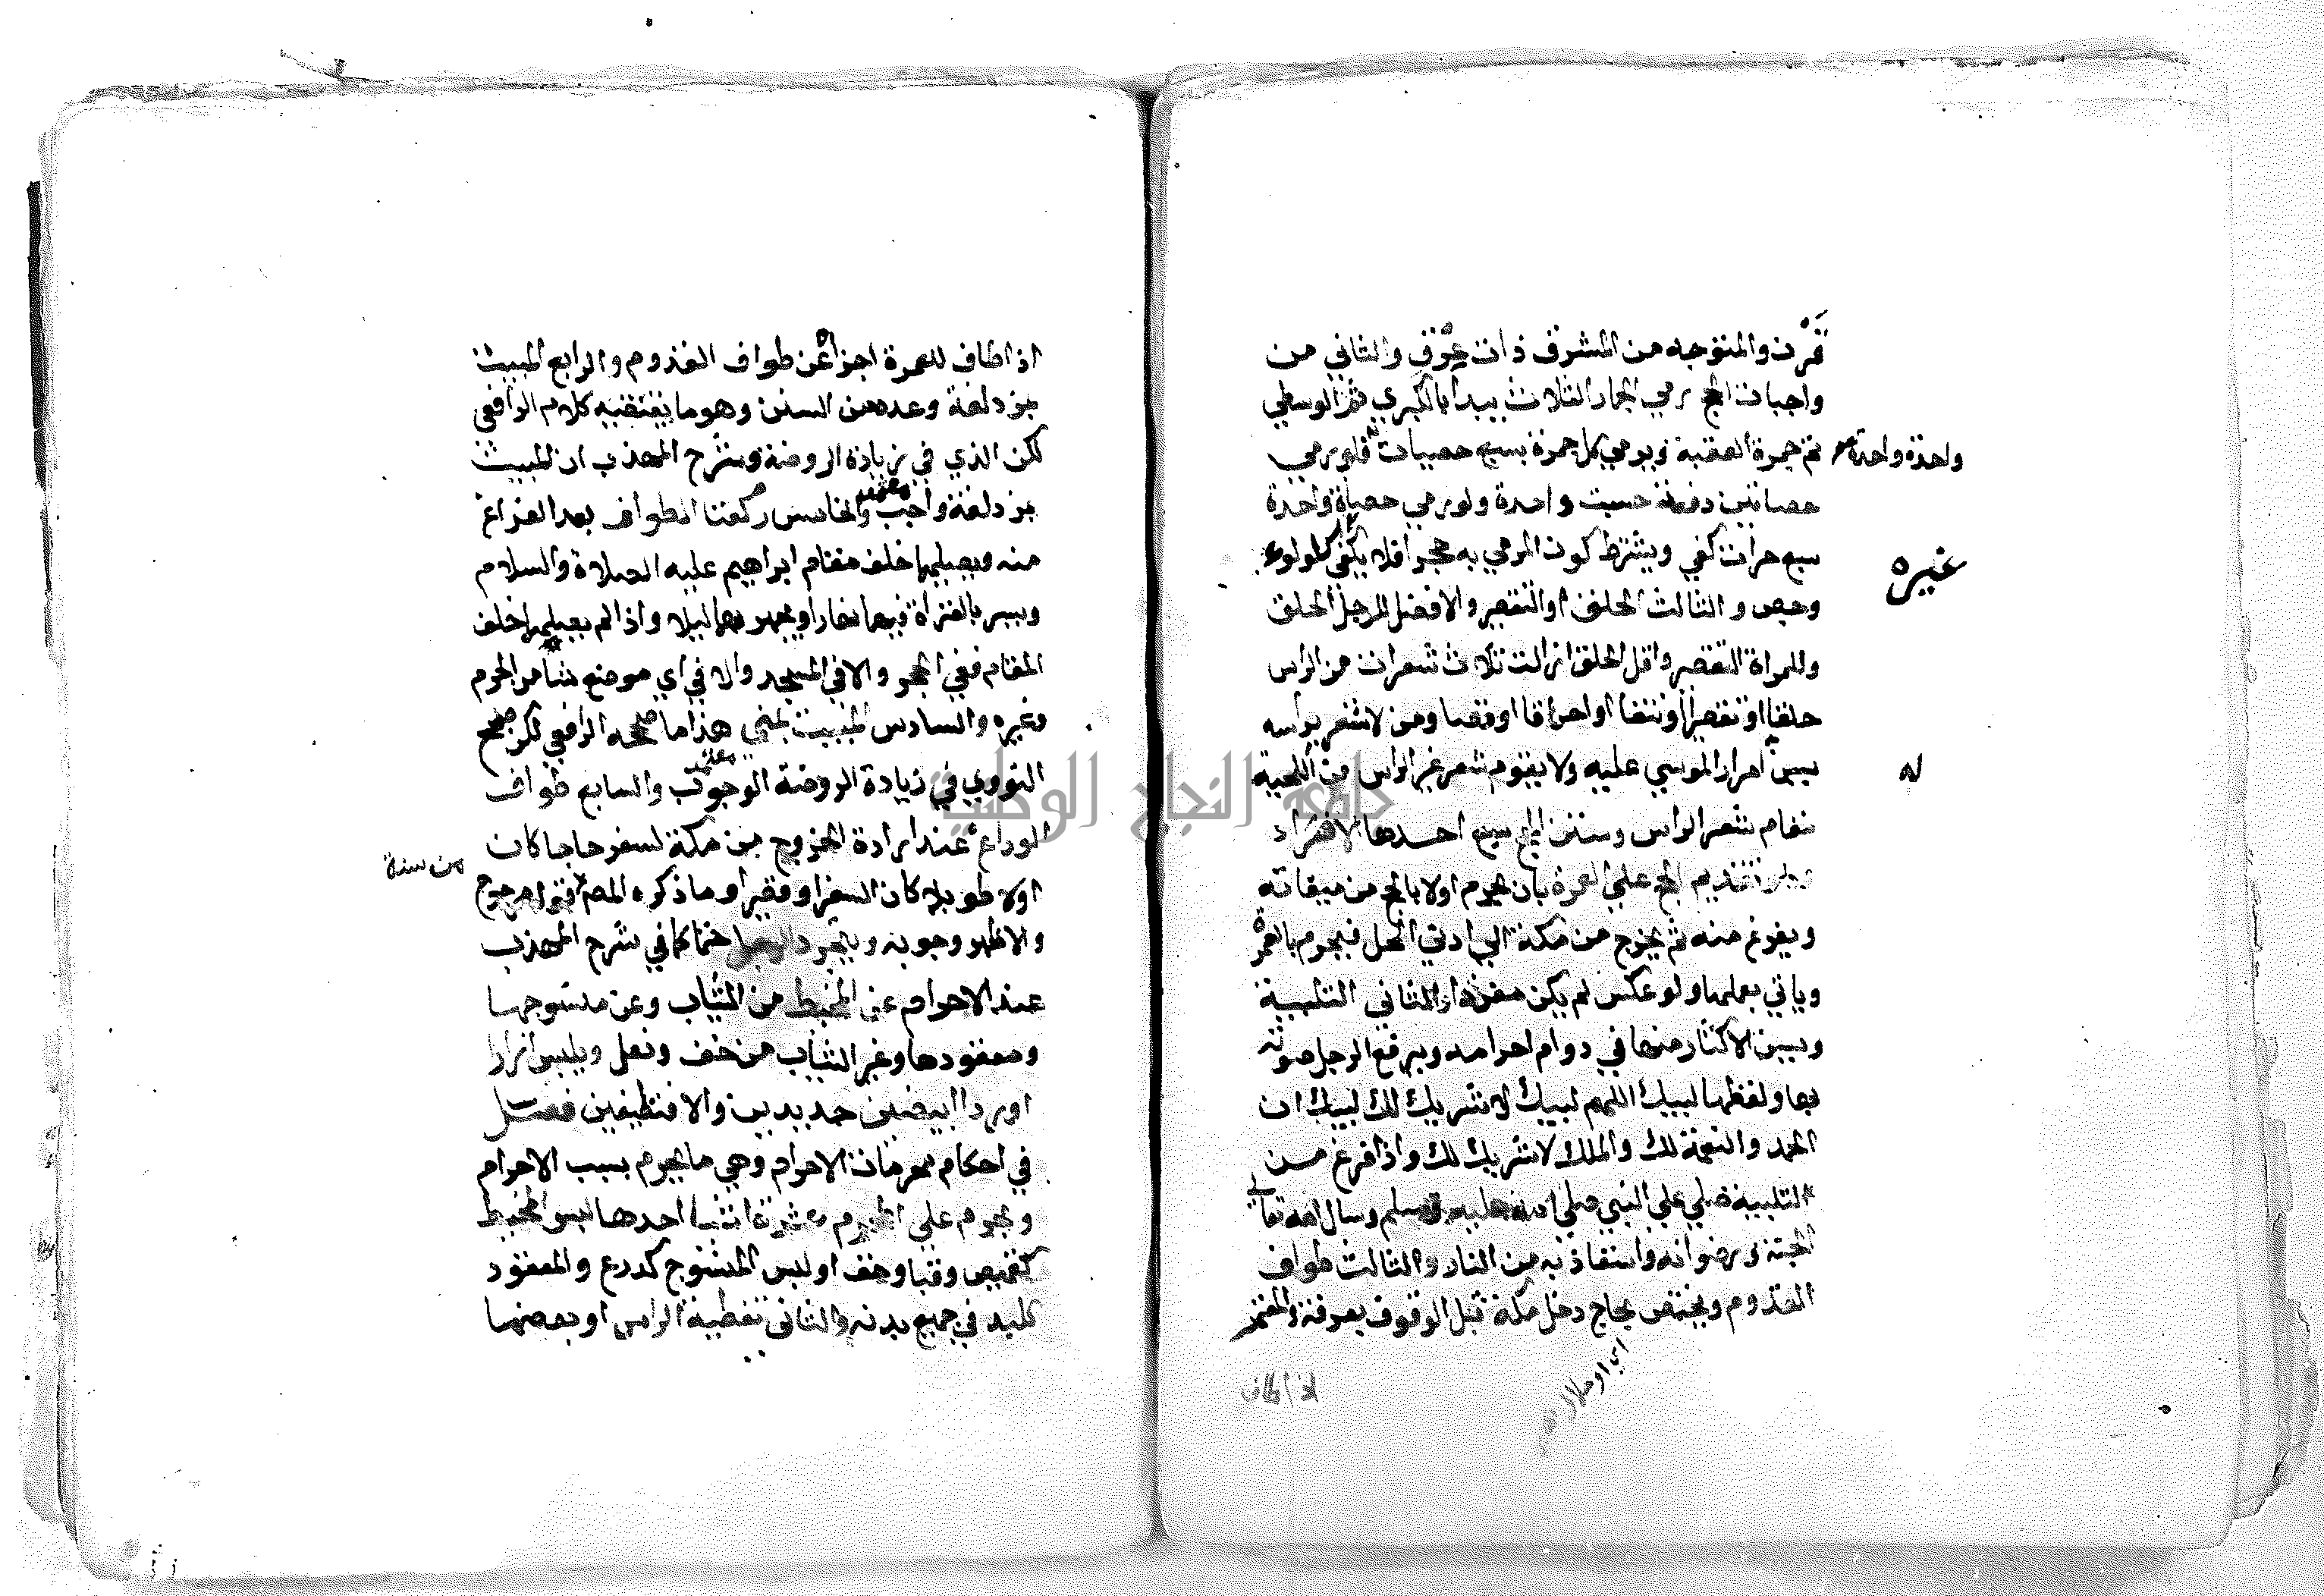 قرن والمتوجه من المشرق ذات عرق والثاني من
واجبات الحج رمي الجمار الثلاث يبدأ بالكبري ثم الوسطي
ثم جمرة العقبة ويرمي كل جمرة بسبع حصيات فلو رمي
واحدة واحدة
حصاتين دفعة حسبت واحدة ولو رمي حصاة واحدة
سبع مرات كفي ويشترط كون المرمي به حجرا فلا يكفي كلولوء
غيره
وجص والثالث الحلق او التقصير والافضل للرجل الحلق
وللمراة التقصير واقل الحلق ازالت ثلاث شعرات من الراس
حلقا او تقصيرا او نتفا او احراقا او قصا ومن لا شعر براسه
يسن امرار الموسي عليه ولا يقوم شعر غير الراس من اللحية
له
مقام شعر الراس وسنن الحج سبع احدها الافراد
تقديم الحج علي العمرة بان يحرم اولا بالحج من ميقاته
ويفرغ منه ثم يخرج من مكة الي ادني الحل فيحرم بالعمرة
وياتي بعملها ولو عكس لم يكن مفردا والثاني التلبية
ويسن الاكثار منها في دوام احرامه ويرفع الرجل صوته
بها ولفظها لبيك اللهم لبيك لا شريك لك لبيك ان
الحمد والنعمة لك والملك لا شريك لك واذا فرغ من
التلبية صلي علي النبي صلي الله عليه وسلم وسال الله تعالي
الجنة ورضوانه واستعاذ به من النار والثالث طواف
القدوم ويختص بحاج دخل مكة قبل الوقوف بعرفة والمعتمر
اذا طاف
اذا طاف للعمرة اجزا عن طواف القدوم والرابع المبيت
بمزدلفة وعده من السنن وهو ما يقتضيه كلام الرافعي
لكن الذي في زيادة الروضة وشرح المهذب ان المبيت
بمزدلفة واجب والخامس ركعتا الطواف بعد الفراغ
معتمد
منه ويصليهما خلف مقام ابراهيم عليه الصلاة والسلام
ويسر بالقراة فيهما نهارا ويجهر بهما ليلا واذا لم يصليهما خلف
المقام ففي الحجر والا ففي المسجد والا في اي موضع شا من الحرم
وغيره والسادس المبيت بمني هذا ما صححه الرافعي لكن صحح
النووي في زيادة الروضة الوجوب والسابع طواف
معتمد
الوداع عند ارادة الخروج من مكة لسفر حاجا كان
اولا طويلا كان السفر او قصيرا وما ذكره المصنف مرجوح
من سنة
والاظهر وجوبه ويتجرد الرجل حتما كما في شرح المهذب
عند الاحرام عن المخيط من الثياب وعن منسوجها
ومعقودها وغير الثياب من خف ونعل ويلبس ازارا
ورداا ابيضين جديدين والا فنظيفين فصل
في احكام محرمات الاحرام وهي ما يحرم بسبب الاحرام
ويحرم علي المحرم عشرة اشيا احدها لبس المخيط
كقميص وقبا وخف او لبس المنسوج كدرع والمعقود
كلبد في جميع بدنه والثاني تغطية الراس او بعضها
جامعة النجاح الوطنية